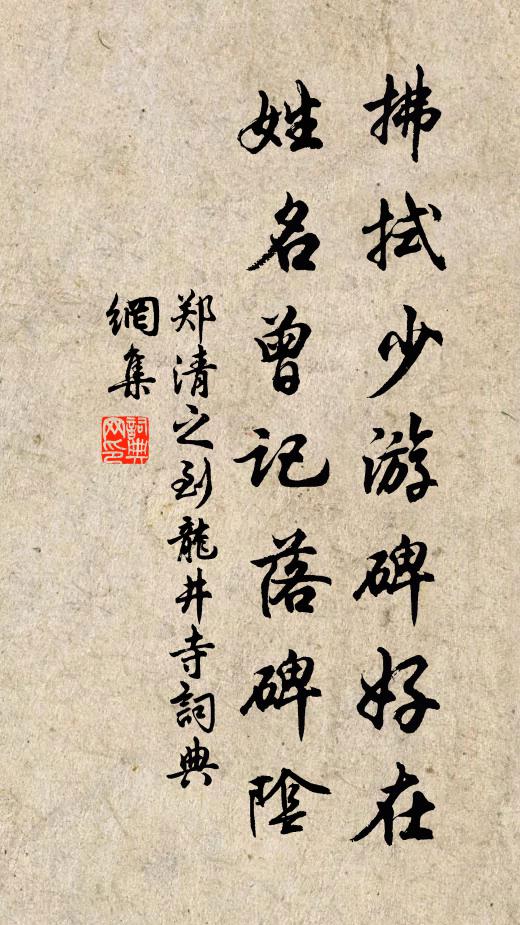 拂拭少游碑好在
姓名曾记落碑陰
郑清之到龍井寺詞典
網集
詞典網印